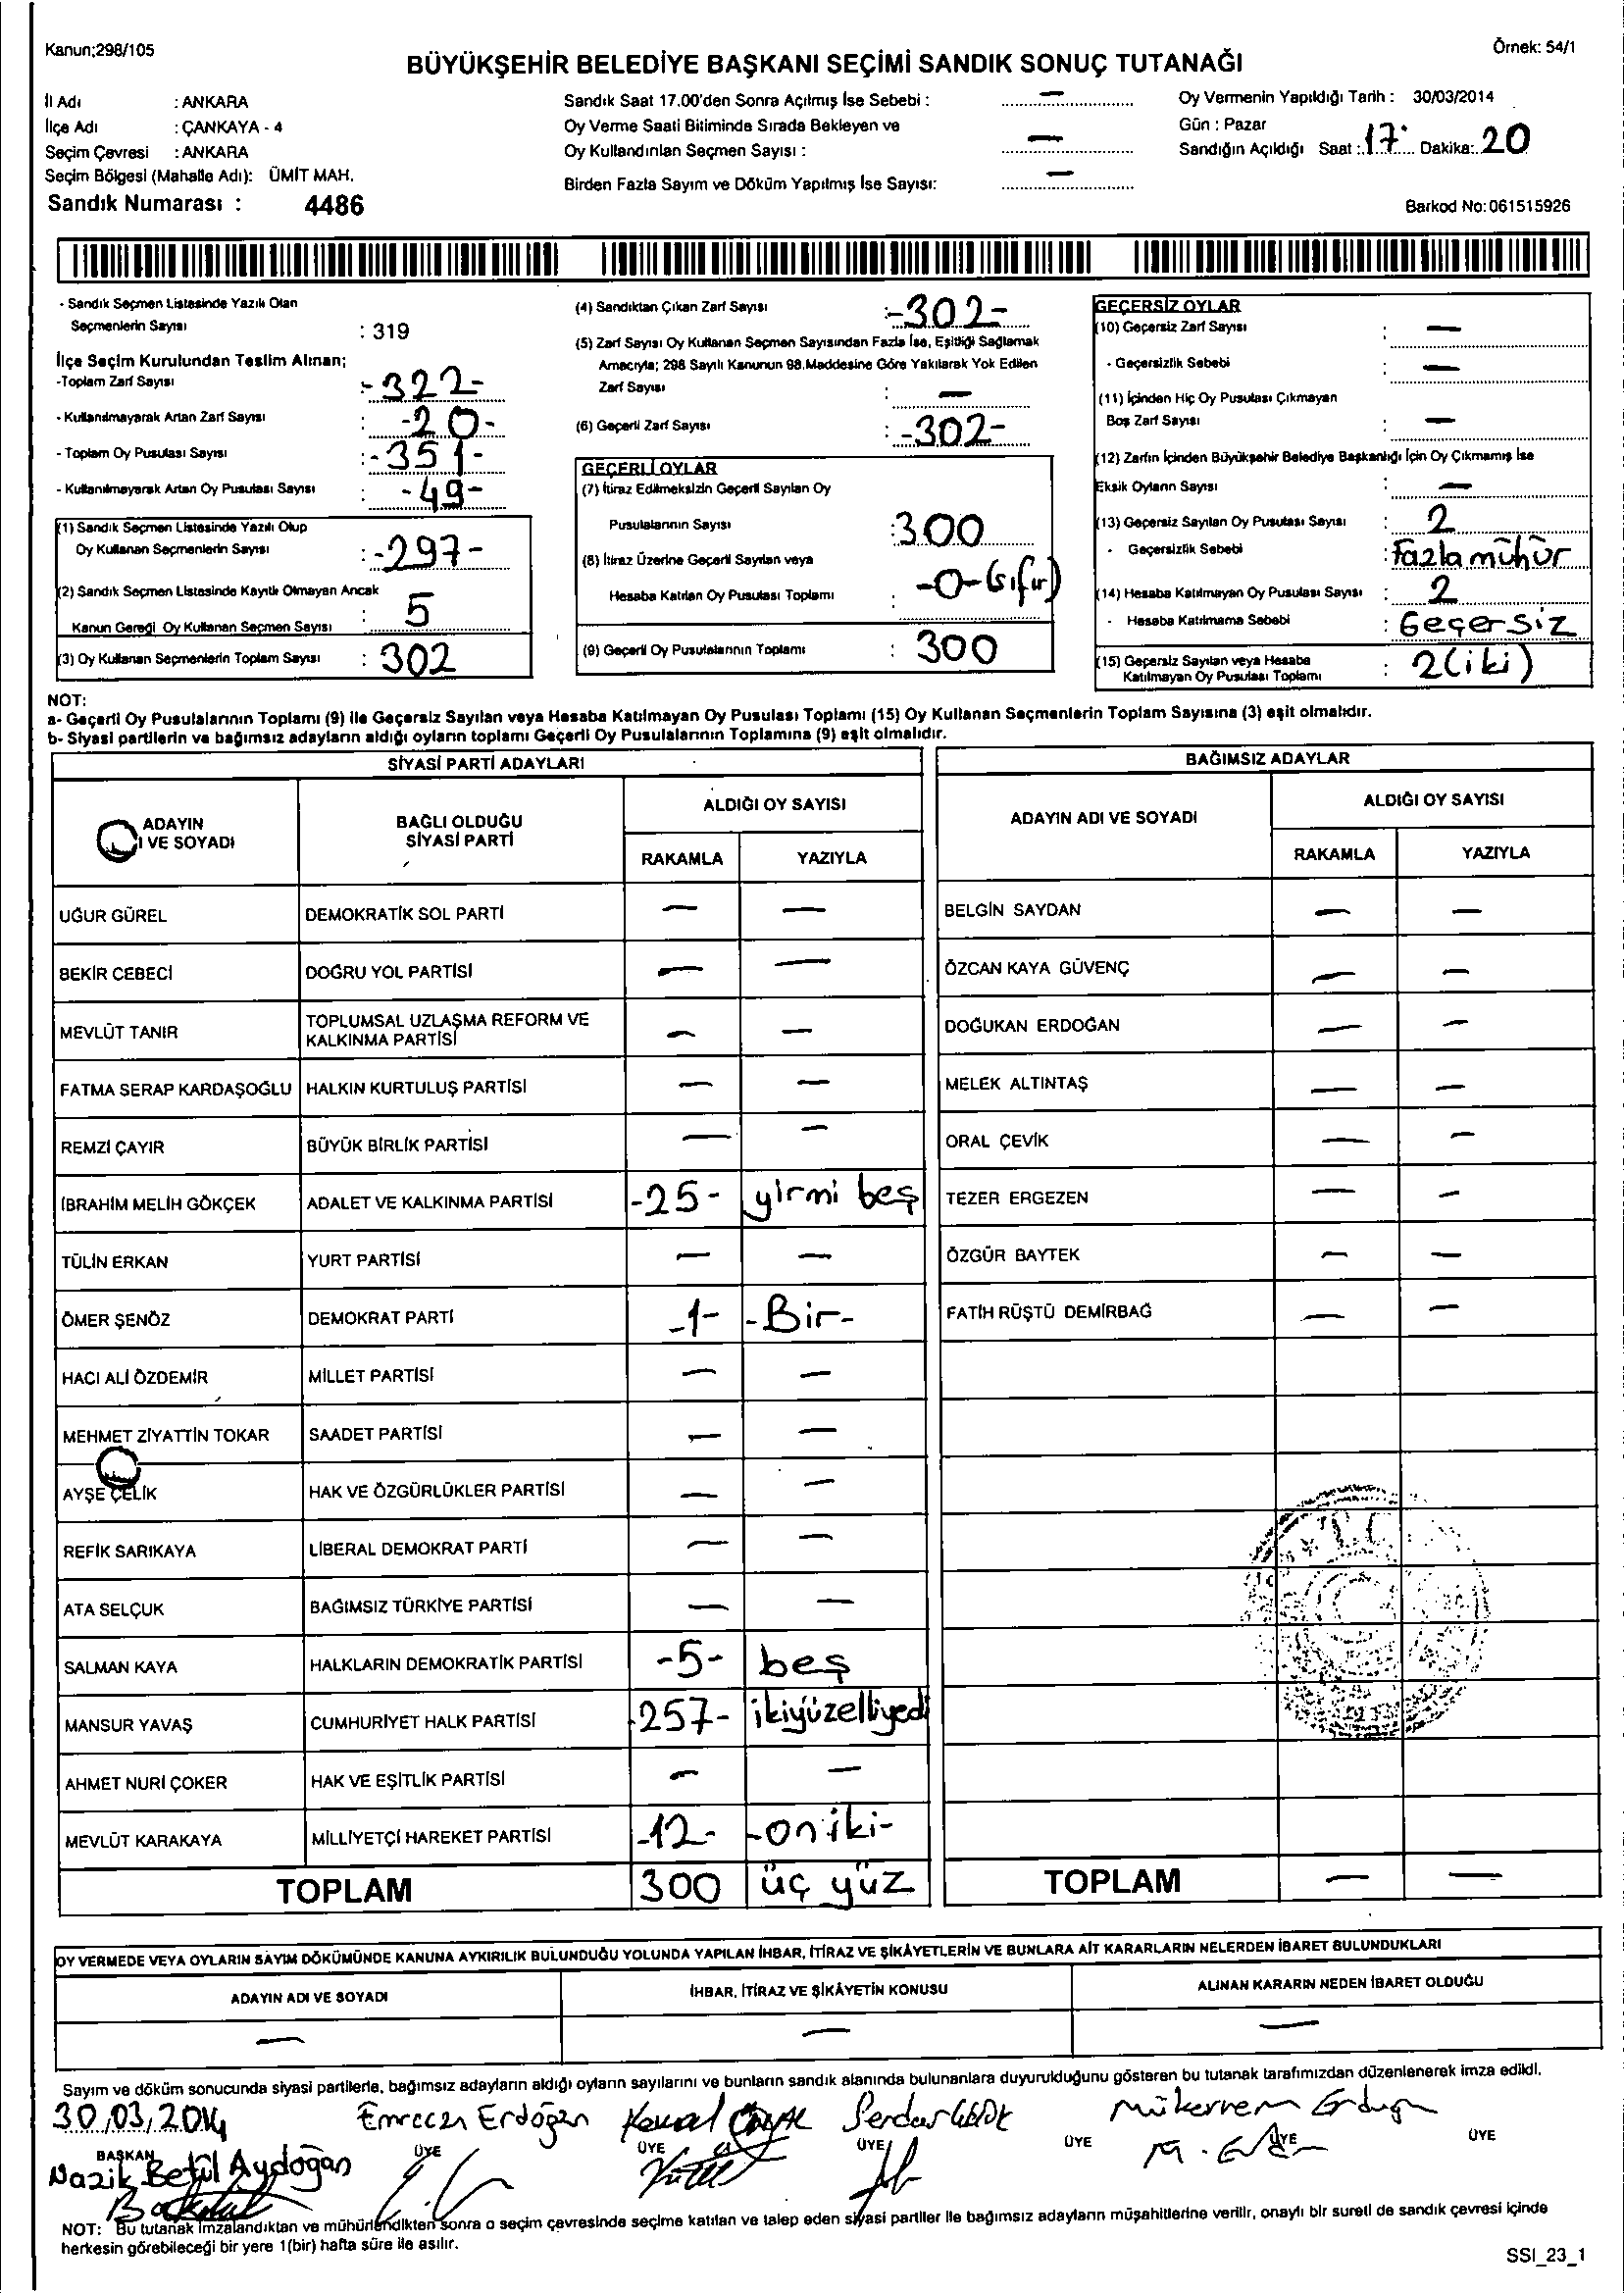 Kanun;298/105
Örnek: 54/1
BÜYÜKŞEHİR BELEDİYE BAŞKANI SEÇİMİ SANDIK SONUÇ TUTANAĞI
İl Adı : ANKARA
İlçe Adı : ÇANKAYA - 4
Seçim Çevresi : ANKARA
Seçim Bölgesi (Mahalle Adı): ÜMİT MAH.
Sandık Numarası : 4486
Sandık Saat 17.00'den Sonra Açılmış İse Sebebi : —
Oy Verme Saati Bitiminde Sırada Bekleyen ve
Oy Kullandırılan Seçmen Sayısı : —
Birden Fazla Sayım ve Döküm Yapılmış İse Sayısı: —
Oy Vermenin Yapıldığı Tarih : 30/03/2014
Gün : Pazar
Sandığın Açıldığı Saat : 17 Dakika: 20
Barkod No: 061515926
- Sandık Seçmen Listesinde Yazılı Olan
Seçmenlerin Sayısı : 319
İlçe Seçim Kurulundan Teslim Alınan;
-Toplam Zarf Sayısı : -322-
- Kullanılmayarak Artan Zarf Sayısı : -20-
- Toplam Oy Pusulası Sayısı : -351-
- Kullanılmayarak Artan Oy Pusulası Sayısı : -49-
(1) Sandık Seçmen Listesinde Yazılı Olup
Oy Kullanan Seçmenlerin Sayısı : -297-
(2) Sandık Seçmen Listesinde Kayıtlı Olmayan Ancak
Kanun Gereği Oy Kullanan Seçmen Sayısı : 5
(3) Oy Kullanan Seçmenlerin Toplam Sayısı : 302
(4) Sandıktan Çıkan Zarf Sayısı : -302-
(5) Zarf Sayısı Oy Kullanan Seçmen Sayısından Fazla İse, Eşitliği Sağlamak
Amacıyla; 298 Sayılı Kanunun 98.Maddesine Göre Yakılarak Yok Edilen
Zarf Sayısı : —
(6) Geçerli Zarf Sayısı : -302-
GEÇERLİ OYLAR
(7) İtiraz Edilmeksizin Geçerli Sayılan Oy
Pusulalarının Sayısı : 300
(8) İtiraz Üzerine Geçerli Sayılan veya
Hesaba Katılan Oy Pusulası Toplamı : -0-(sıfır)
(9) Geçerli Oy Pusulalarının Toplamı : 300
GEÇERSİZ OYLAR
(10) Geçersiz Zarf Sayısı : —
- Geçersizlik Sebebi : —
(11) İçinden Hiç Oy Pusulası Çıkmayan
Boş Zarf Sayısı : —
(12) Zarfın İçinden Büyükşehir Belediye Başkanlığı İçin Oy Çıkmamış İse
Eksik Oyların Sayısı : —
(13) Geçersiz Sayılan Oy Pusulası Sayısı : 2
- Geçersizlik Sebebi : Fazla mühür
(14) Hesaba Katılmayan Oy Pusulası Sayısı : 2
- Hesaba Katılmama Sebebi : Geçersiz
(15) Geçersiz Sayılan veya Hesaba
Katılmayan Oy Pusulası Toplamı : 2(iki)
NOT:
a- Geçerli Oy Pusulalarının Toplamı (9) ile Geçersiz Sayılan veya Hesaba Katılmayan Oy Pusulası Toplamı (15) Oy Kullanan Seçmenlerin Toplam Sayısına (3) eşit olmalıdır.
b- Siyasi partilerin ve bağımsız adayların aldığı oyların toplamı Geçerli Oy Pusulalarının Toplamına (9) eşit olmalıdır.
SİYASİ PARTİ ADAYLARI
ADAYIN
I VE SOYADI
BAĞLI OLDUĞU
SİYASİ PARTİ
ALDIĞI OY SAYISI
RAKAMLA YAZIYLA
UĞUR GÜREL DEMOKRATİK SOL PARTİ — —
BEKİR CEBECİ DOĞRU YOL PARTİSİ — —
MEVLÜT TANIR TOPLUMSAL UZLAŞMA REFORM VE
KALKINMA PARTİSİ — —
FATMA SERAP KARDAŞOĞLU HALKIN KURTULUŞ PARTİSİ — —
REMZİ ÇAYIR BÜYÜK BİRLİK PARTİSİ — —
İBRAHİM MELİH GÖKÇEK ADALET VE KALKINMA PARTİSİ -25- yirmi beş
TÜLİN ERKAN YURT PARTİSİ — —
ÖMER ŞENÖZ DEMOKRAT PARTİ -1- -Bir-
HACI ALİ ÖZDEMİR MİLLET PARTİSİ — —
MEHMET ZİYATTİN TOKAR SAADET PARTİSİ — —
AYŞE ÇELİK HAK VE ÖZGÜRLÜKLER PARTİSİ — —
REFİK SARIKAYA LİBERAL DEMOKRAT PARTİ — —
ATA SELÇUK BAĞIMSIZ TÜRKİYE PARTİSİ — —
SALMAN KAYA HALKLARIN DEMOKRATİK PARTİSİ -5- beş
MANSUR YAVAŞ CUMHURİYET HALK PARTİSİ -257- ikiyüzelliyedi
AHMET NURİ ÇOKER HAK VE EŞİTLİK PARTİSİ — —
MEVLÜT KARAKAYA MİLLİYETÇİ HAREKET PARTİSİ -12- -oniki-
TOPLAM 300 üç yüz
BAĞIMSIZ ADAYLAR
ADAYIN ADI VE SOYADI
ALDIĞI OY SAYISI
RAKAMLA YAZIYLA
BELGİN SAYDAN — —
ÖZCAN KAYA GÜVENÇ — —
DOĞUKAN ERDOĞAN — —
MELEK ALTINTAŞ — —
ORAL ÇEVİK — —
TEZER ERGEZEN — —
ÖZGÜR BAYTEK — —
FATİH RÜŞTÜ DEMİRBAĞ — —
TOPLAM — —
OY VERMEDE VEYA OYLARIN SAYIM DÖKÜMÜNDE KANUNA AYKIRILIK BULUNDUĞU YOLUNDA YAPILAN İHBAR, İTİRAZ VE ŞİKÂYETLERİN VE BUNLARA AİT KARARLARIN NELERDEN İBARET BULUNDUKLARI
ADAYIN ADI VE SOYADI İHBAR, İTİRAZ VE ŞİKÂYETİN KONUSU ALINAN KARARIN NEDEN İBARET OLDUĞU
— — —
Sayım ve döküm sonucunda siyasi partilerle, bağımsız adayların aldığı oyların sayılarını ve bunların sandık alanında bulunanlara duyurulduğunu gösteren bu tutanak tarafımızdan düzenlenerek imza edildi.
30/03/2014 Emrecan Erdoğan Kemal Serdar Mükerrem
BAŞKAN ÜYE ÜYE ÜYE ÜYE ÜYE ÜYE
Nazik Betül Aydoğan
NOT: Bu tutanak imzalandıktan ve mühürlendikten sonra o seçim çevresinde seçime katılan ve talep eden siyasi partiler ile bağımsız adayların müşahitlerine verilir, onaylı bir sureti de sandık çevresi içinde
herkesin görebileceği bir yere 1(bir) hafta süre ile asılır.
SSI_23_1